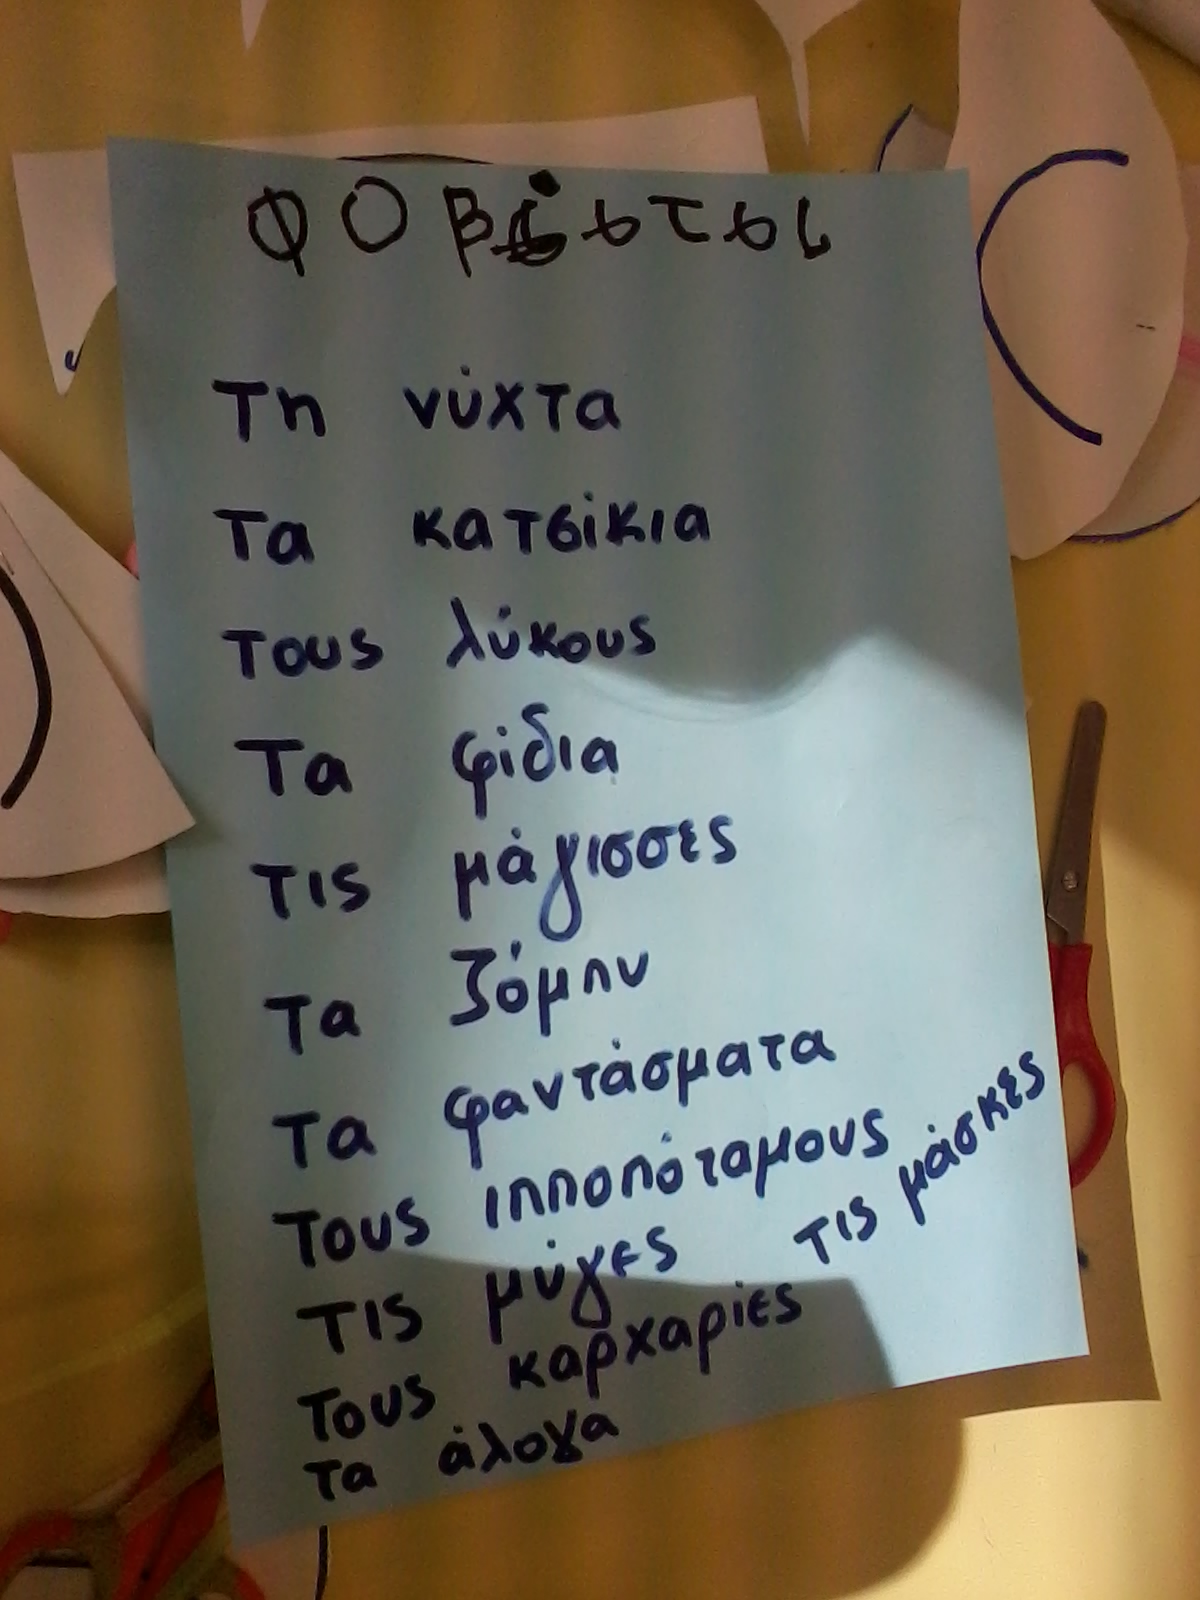 φοβάσαι
Τη νύχτα
Τα κατσίκια
Τους λύκους
Τα φίδια
Τις μάγισσες
Τα ζόμπυ
Τα φαντάσματα
Τους ιπποπόταμους
Τις μύγες τις μάσκες
Τους καρχαρίες
τα άλογα